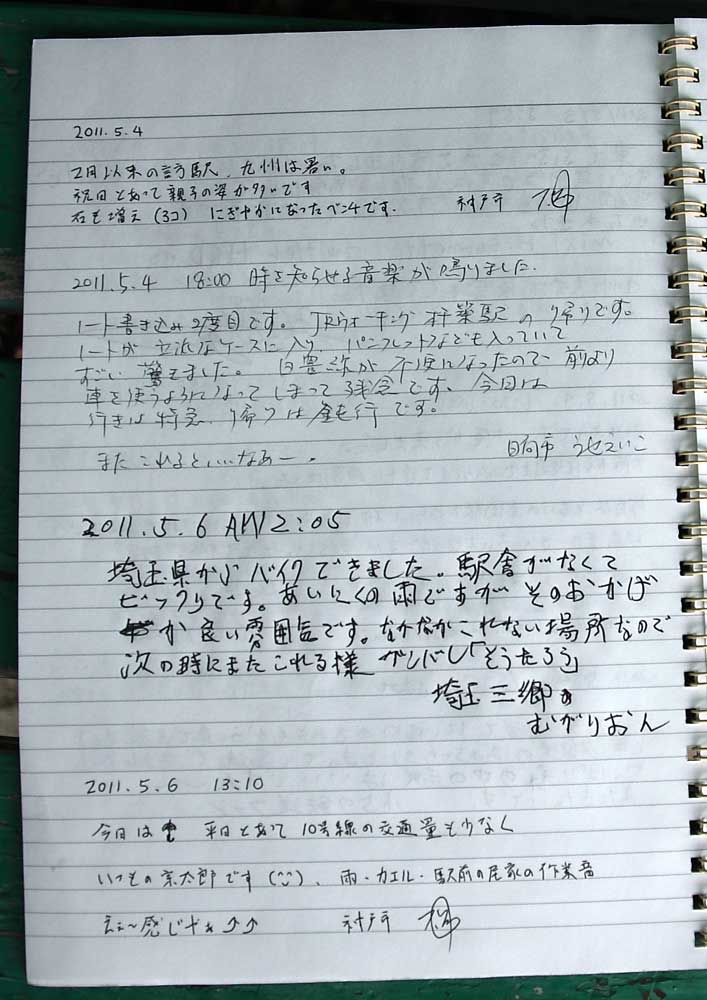 2011.5.4
2月以来の訪駅、九州は暑い。
祝日とあって親子の姿が多いです
石も増え(3コ) にぎやかになったベンチです. 神戸市
2011.5.4 18:00 時を知らせる音楽が鳴りました.
ノート書き込み2度目です。JRウォーキング 杵築駅の帰りです。
ノートが立派なケースに入り パンフレットなども入っていて
すごい 驚きました。日豊線が不便になったので 前より
車を使うようになってしまって残念です、今日は
行きは特急、帰りは鈍行です。
またこれるといいなあー。 日向市
2011.5.6 AM12:05
埼玉県からバイクできました。駅舎がなくて
ビックリです。あいにくの雨ですが そのおかげ
か良い雰囲気です。なかなかこれない場所なので
次の時にまたこれる様 ガンバレ「そうたろう」
埼玉三郷の
むがりおん
2011.5.6 13:10
今日は 平日とあって10号線の交通量も少なく
いつもの宗太郎です(^^)、雨・カエル・駅前の民家の作業音
ええ〜感じやぁ↑↑ 神戸市